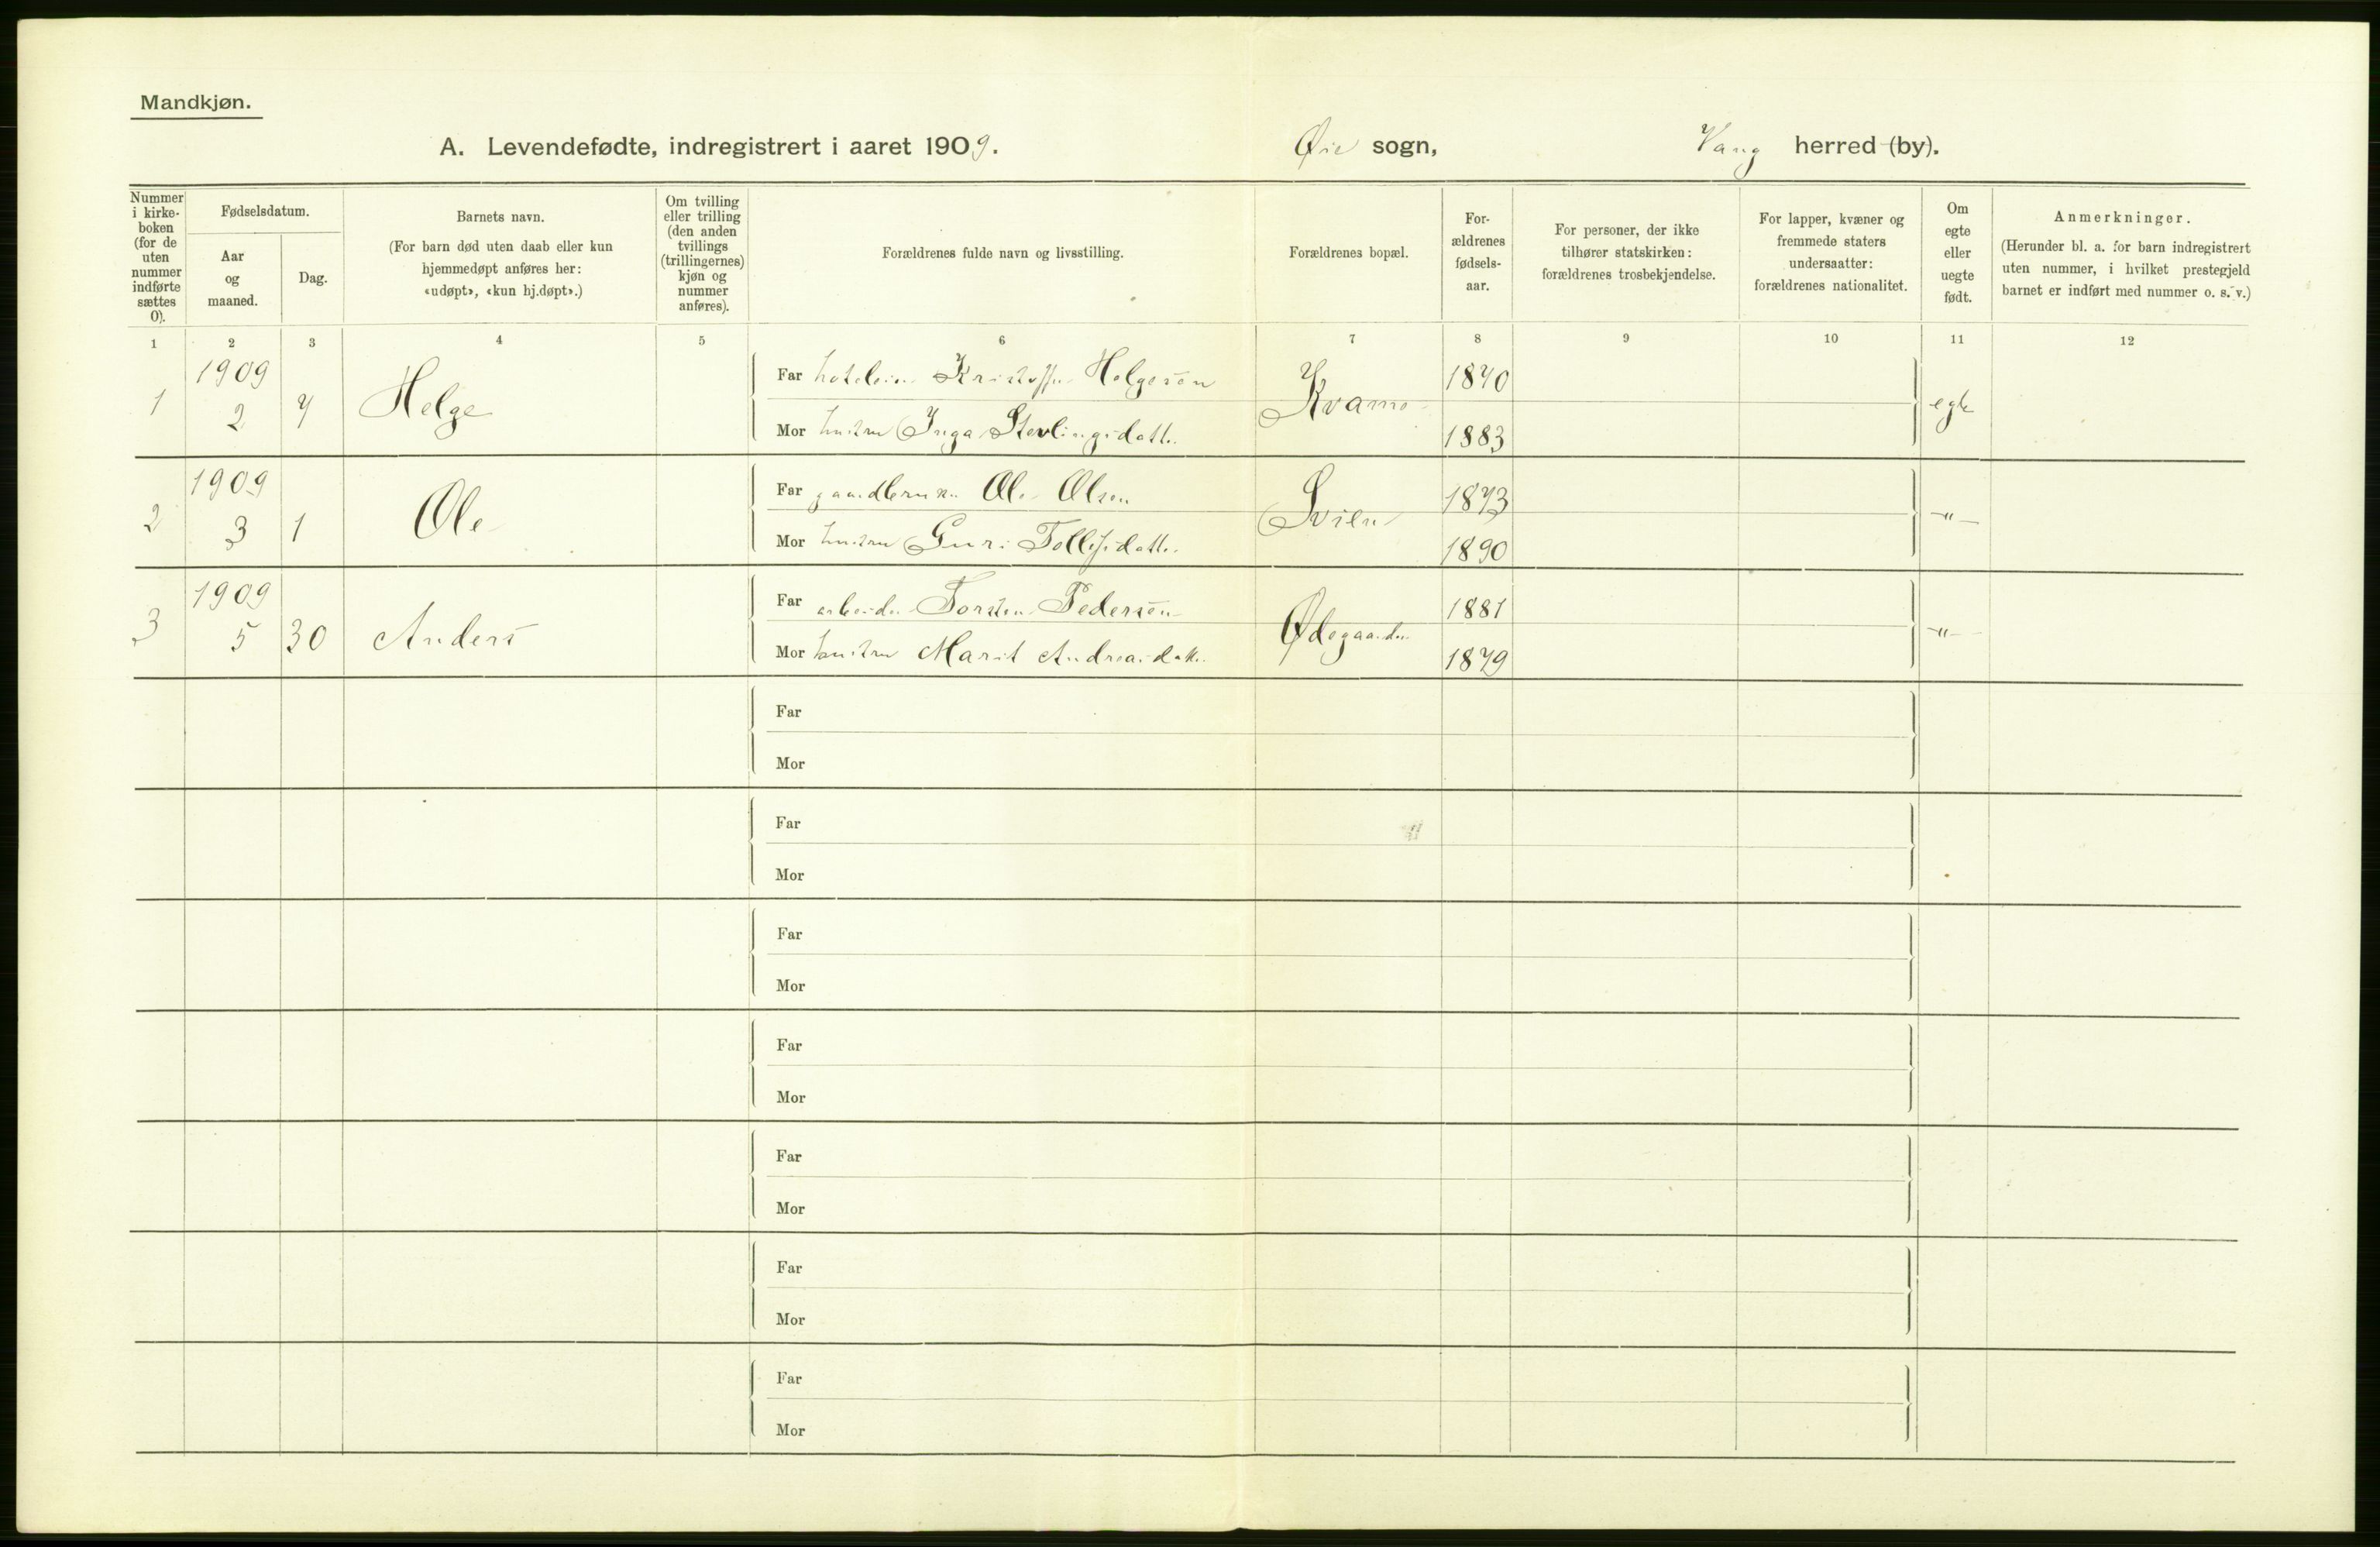 Mandkjøn.
A. Levendefødte, indregistrert i aaret 1909. Øie sogn, Vang herred (by).
Nummer i kirke- boken (for de uten nummer indførte sættes 0).
Fødselsdatum.
Aar og maaned.
Dag.
Barnets navn.
(For barn død uten daab eller kun
hjemmedøpt anføres her:
«udøpt», «kun hj.døpt».)
Om tvilling
eller trilling
(den anden
tvillings
(trillingernes)
kjøn og
nummer
anføres).
Forældrenes fulde navn og livsstilling.
Forældrenes bopæl.
For-
ældrenes
fødsels-
aar.
For personer, der ikke
tilhører statskirken:
forældrenes trosbekjendelse.
For lapper, kvæner og
fremmede staters
undersaatter:
forældrenes nationalitet.
Om
egte
eller
uegte
født.
Anmerkninger.
(Herunder bl. a. for barn indregistrert
uten nummer, i hvilket prestegjeld
barnet er indført med nummer o. s. v.)
1 2 3 4 5 6 7 8 9 10 11 12
1 1909 2 7 Helge
Far hoteleier Kristoffer Helgesen Kvame 1870 egte
Mor hustru Inga Sterlingsdatter 1883
2 1909 3 1 Ole
Far Ole Olsen Svien 1873 -"-
Mor hustru Guri Tollefsdatter 1890
3 1909 5 30 Anders
Far arbeider Torsten Pedersen Ødegaarden 1881 -"-
Mor hustru Marit Andreasdatter 1879
Far
Mor
Far
Mor
Far
Mor
Far
Mor
Far
Mor
Far
Mor
Far
Mor